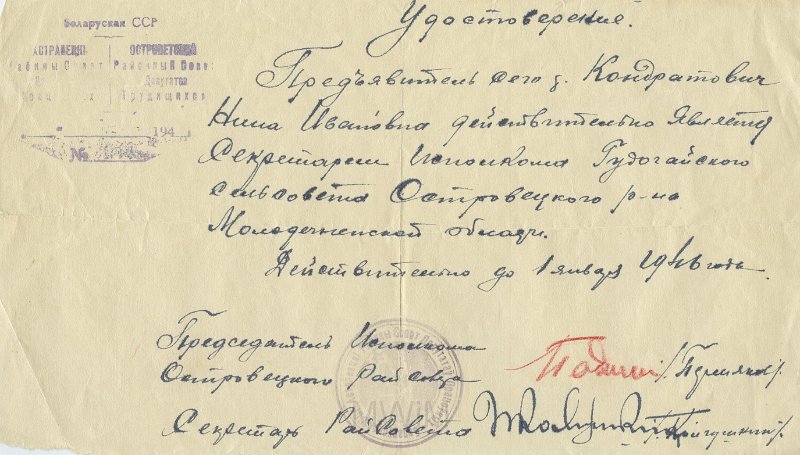 Беларуская ССР
Удостоверение.
ОСТРОВЕЦКИЙ
Районный Совет
Депутатов
Трудящихся
194
№
Предъявитель сего г. Кондратович
Нина Ивановна действительно является
Секретарем Исполкома Гудогайского
сельсовета Островецкого р-на
Молодечненской области.
Действительно до 1 января 1946 года.
Председатель Исполкома
Островецкого Райсовета
Секретарь РайСовета
MWM